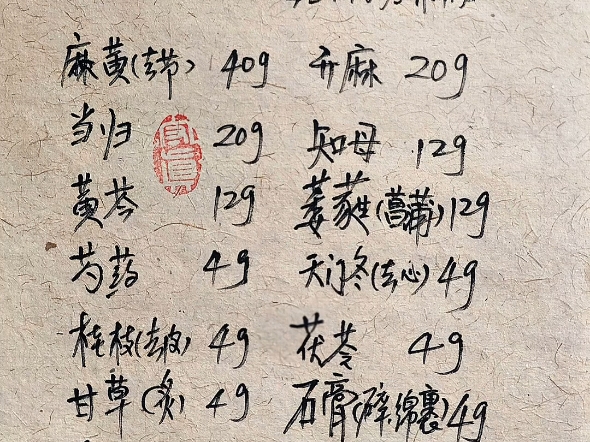 麻黄(去节) 40g 升麻 20g
当归 20g 知母 12g
黄芩 12g 萎蕤(菖蒲)12g
芍药 4g 天门冬(去心)4g
桂枝(去皮) 4g 茯苓 4g
甘草(炙) 4g 石膏(碎,绵裹)4g